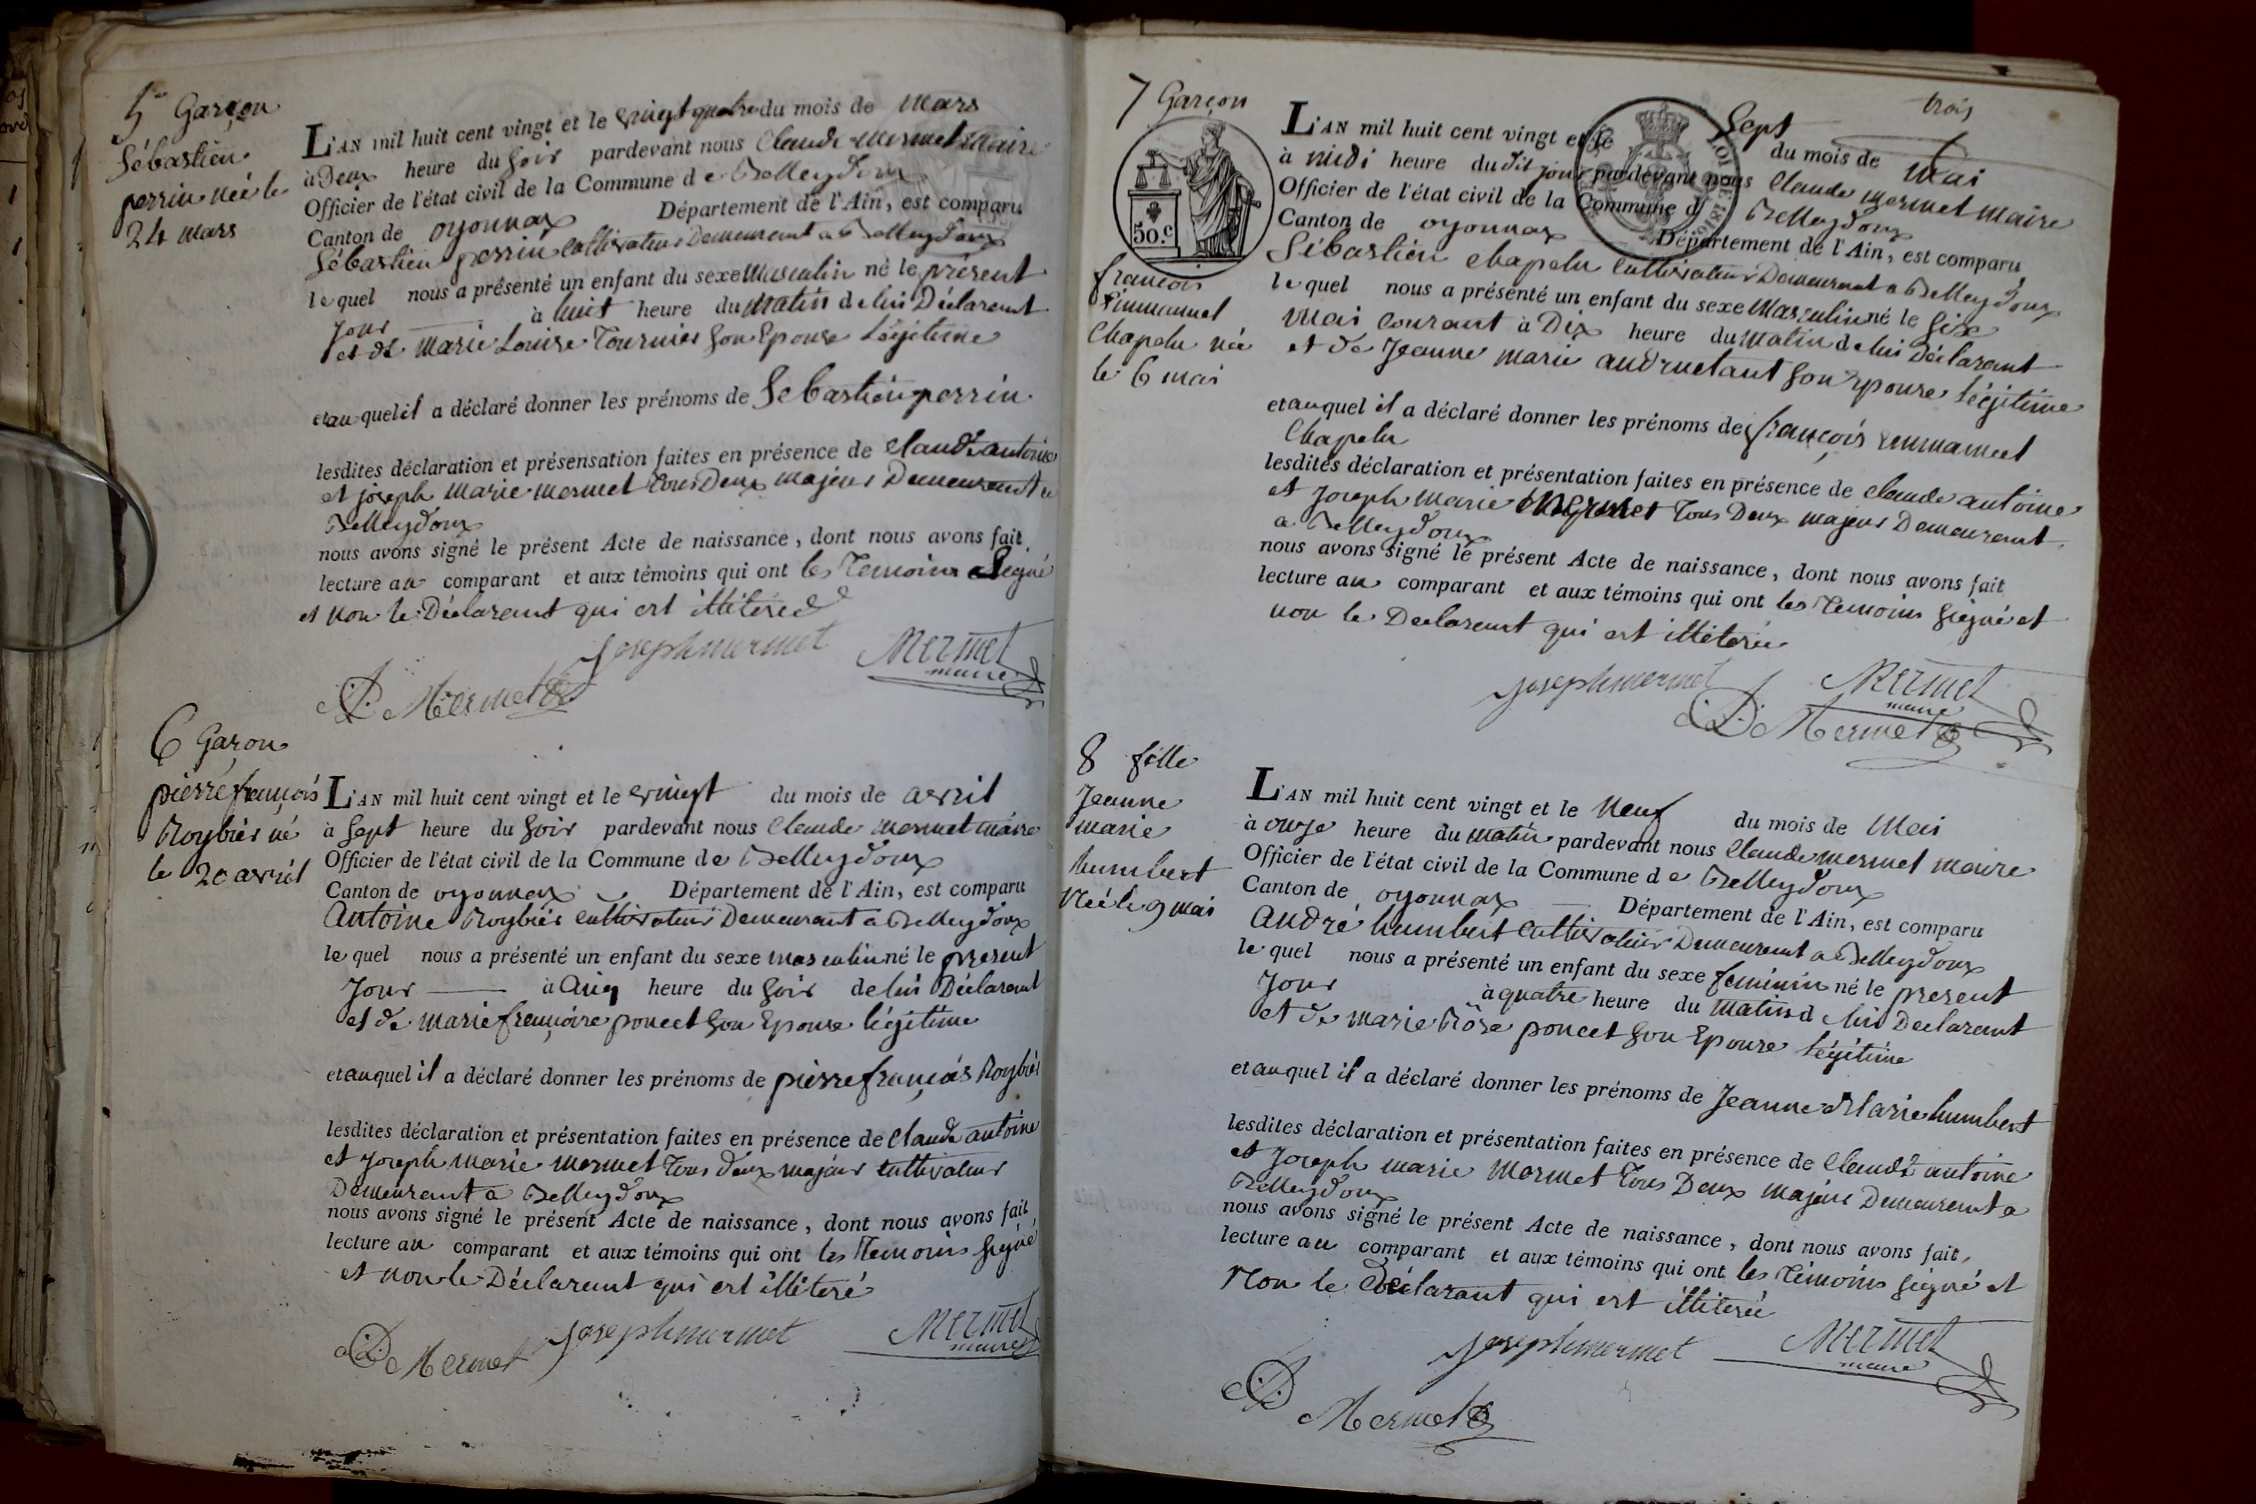 5 Garçon
Sébastien
perrin née le
24 mars
L'AN mil huit cent vingt et le vingt quatre du mois de Mars
à Deux heure du Soir pardevant nous Claude Mermet Maire
Officier de l'état civil de la Commune de Belleydoux
Canton de oyonnax Département de l'Ain, est comparu
Sébastien perrin cultivateur Demeurant a Belleydoux
lequel nous a présenté un enfant du sexe Masculin né le présent
Jour à huit heure du Matin de lui Déclarant
et de Marie Louise Tournier Son Epouse Légitime
et au quel il a déclaré donner les prénoms de Sebastien perrin
lesdites déclaration et présensation faites en présence de Claude antoine
et joseph Marie Mermet tous Deux majeurs Demeurant a
Belleydoux
nous avons signé le présent Acte de naissance, dont nous avons fait
lecture au comparant et aux témoins qui ont les Temoins Signé
et non le Déclarant qui est illiteré
Joseph mermet Mermet
maire
Mermet
6 Garon
pierre françois
Roybier né
le 20 avril
L'AN mil huit cent vingt et le vingt du mois de avril
à Sept heure du Soir pardevant nous Claude Mermet maire
Officier de l'état civil de la Commune de Belleydoux
Canton de oyonnax Département de l'Ain, est comparu
Antoine Roybier cultivateur Demeurant a Belleydoux
lequel nous a présenté un enfant du sexe masculin né le présent
Jour à Cinq heure du Soir de lui Déclarant
et de Marie françoise poncet Son Epouse légitime
et auquel il a déclaré donner les prénoms de pierre françois Roybier
lesdites déclaration et présentation faites en présence de Claude antoine
et Joseph Marie Mermet Tous deux majeur cultivateur
Demeurant a Belleydoux
nous avons signé le présent Acte de naissance, dont nous avons fait
lecture au comparant et aux témoins qui ont les Temoins Signé
et non le Déclarant qui est illiteré
Joseph mermet Mermet
maire
Mermet
trois
7 Garçon
50.c
françois
Emmanuel
Chapelu née
le 6 mai
L'AN mil huit cent vingt et le Sept du mois de Mai
à midi heure du dit jour pardevant nous Claude Mermet Maire
Officier de l'état civil de la Commune d Belleydoux
Canton de oyonnax Département de l'Ain, est comparu
Sébastien Chapelu cultivateur Demeurant a Belleydoux
lequel nous a présenté un enfant du sexe Masculin né le Six
Mai Courant à Dix heure du Matin de lui Déclarant
et de Jeanne Marie Son Epouse Légitime
et auquel il a déclaré donner les prénoms de françois
Chapelu
lesdites déclaration et présentation faites en présence de Claude antoine
et Joseph Marie Mermet Tous Deux majeurs Demeurant
a Belleydoux
nous avons signé le présent Acte de naissance, dont nous avons fait
lecture au comparant et aux témoins qui ont les Temoins Signé et
non le Declarant qui est illiterée
Joseph mermet Mermet
maire
Mermet
8 fille
Jeanne
Marie
humbert
Née le 9 mai
L'AN mil huit cent vingt et le Neuf du mois de Mai
à onze heure du Matin pardevant nous Claude Mermet Maire
Officier de l'état civil de la Commune de Belleydoux
Canton de oyonnax Département de l'Ain, est comparu
André humbert cultivateur Demeurant a Belleydoux
lequel nous a présenté un enfant du sexe feminin né le present
Jour à quatre heure du Matin de lui Declarant
et de Marie Rôse poncet Son Epouse Légitime
et auquel il a déclaré donner les prénoms de Jeanne Marie humbert
lesdites déclaration et présentation faites en présence de Claude antoine
et Joseph Marie Mermet Tous Deux majeurs Demeurant a
Belleydoux
nous avons signé le présent Acte de naissance, dont nous avons fait
lecture au comparant et aux témoins qui ont les Témoins Signé et
Non le Déclarant qui est illiterée
Joseph mermet Mermet
maire
Mermet